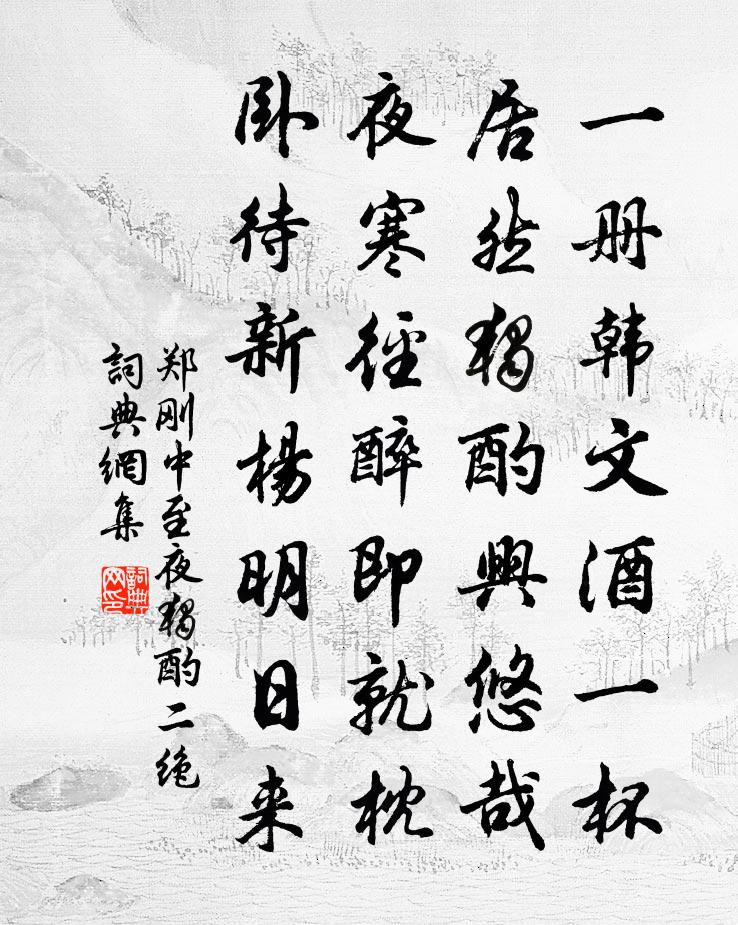 一册韩文酒一杯
居然獨酌興悠哉
夜寒徑醉即就枕
卧待新楊明日来
郑刚中至夜獨酌二绝
詞典網集
詞典网印